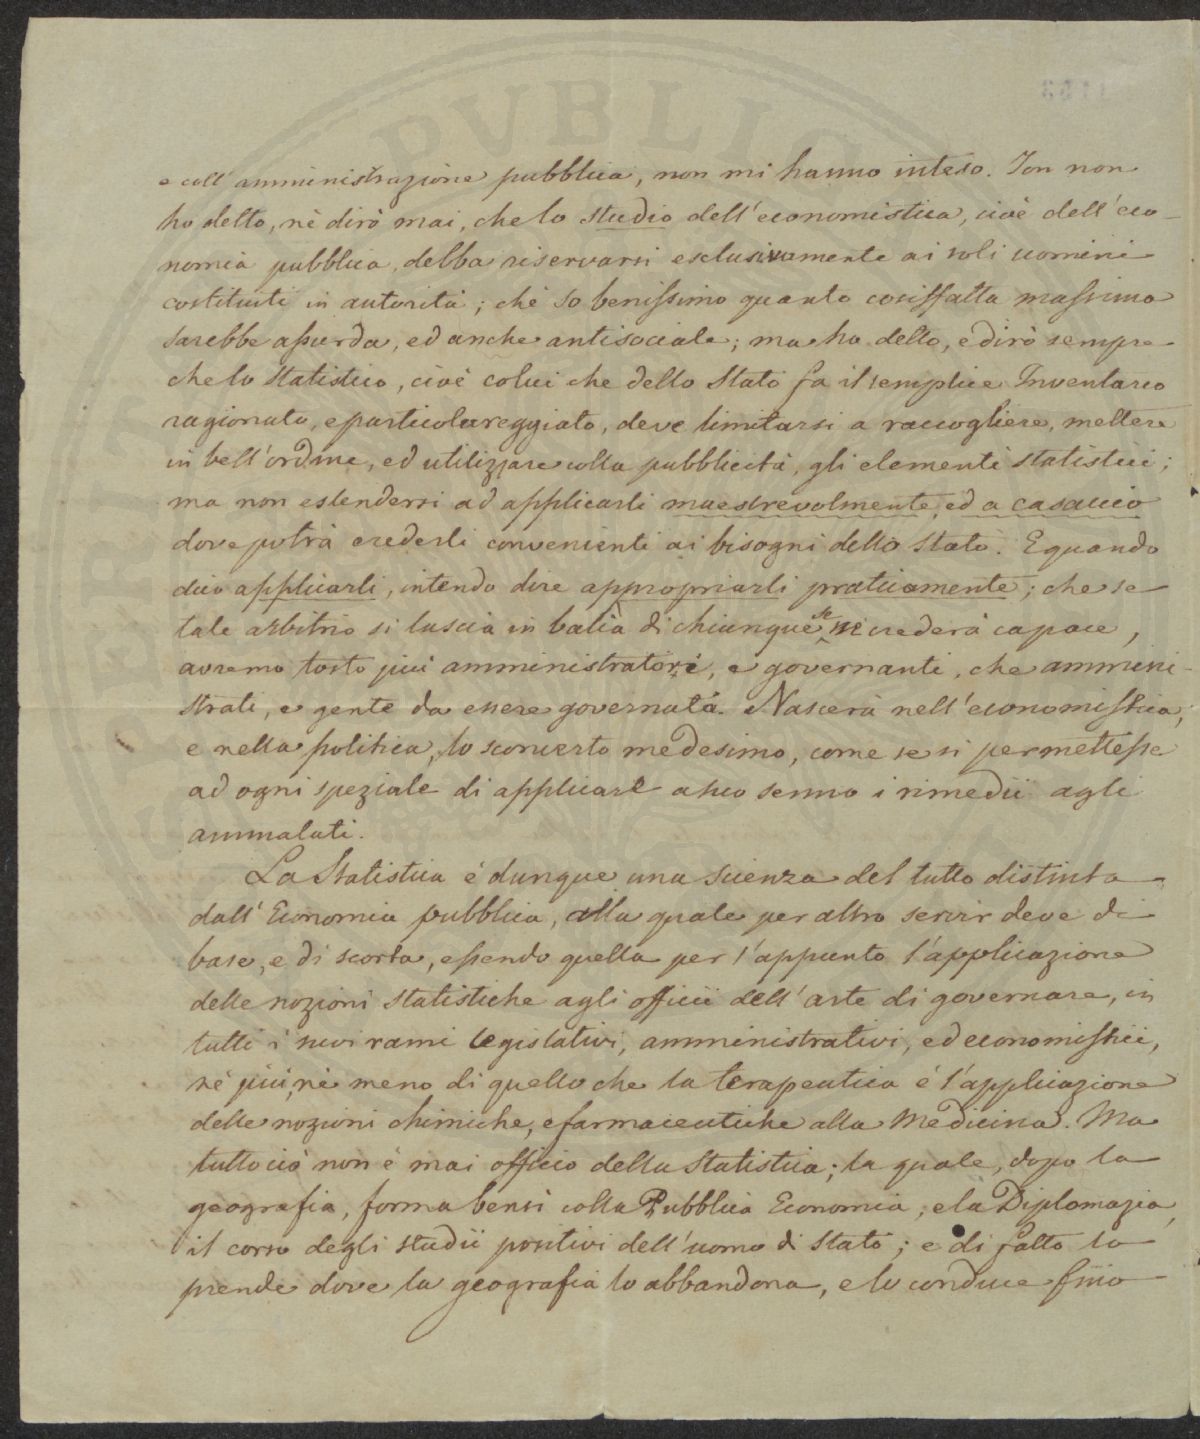 e coll'amministrazione pubblica, non mi hanno inteso. Ion non
ho detto, nè dirò mai, che lo studio dell'economistica, cioè dell'eco-
nomia pubblica, debba riservarsi esclusivamente ai soli uomini
costituiti in autorità; chè so benissimo quanto cosiffatta massima
sarebbe assurda, ed anche antisociale; ma ho detto, e dirò sempre
che lo Statistico, cioè colui che dello Stato fa il semplice Inventario
ragionato, e particolareggiato, deve limitarsi a raccogliere, mettere
in bell'ordine, ed utilizzare colla pubblicità, gli elementi statistici;
ma non estendersi ad applicarli maestrevolmente, ed a casaccio
dove potrà crederli convenienti ai bisogni dello Stato. E quando
dico applicarli, intendo dire appropriarli praticamente; che se
tale arbitrio si lascia in balìa di chiunque se ne crederà capace,
avremo tosto più amministratori, e governanti, che ammini-
strati, e gente da essere governata. Nascerà nell'economistica,
e nella politica, lo sconcerto medesimo, come se si permettesse
ad ogni speziale di applicare a suo senno i rimedii agli
ammalati.
La Statistica è dunque una scienza del tutto distinta
dall'Economia pubblica, alla quale per altro servir deve di
base, e di scorta, essendo quella per l'appunto l'applicazione
delle nozioni statistiche agli officii dell'arte di governare, in
tutti i suoi rami legislativi, amministrativi, ed economistici,
nè più, nè meno di quello che la terapeutica è l'applicazione
delle nozioni chimiche, e farmaceutiche alla Medicina. Ma
tutto ciò non è mai officio della Statistica; la quale, dopo la
geografia, forma bensì colla Pubblica Economia, e la Diplomazia,
il corso degli studii positivi dell'uomo di Stato; e di fatto lo
prende dove la geografia lo abbandona, e lo conduce fino